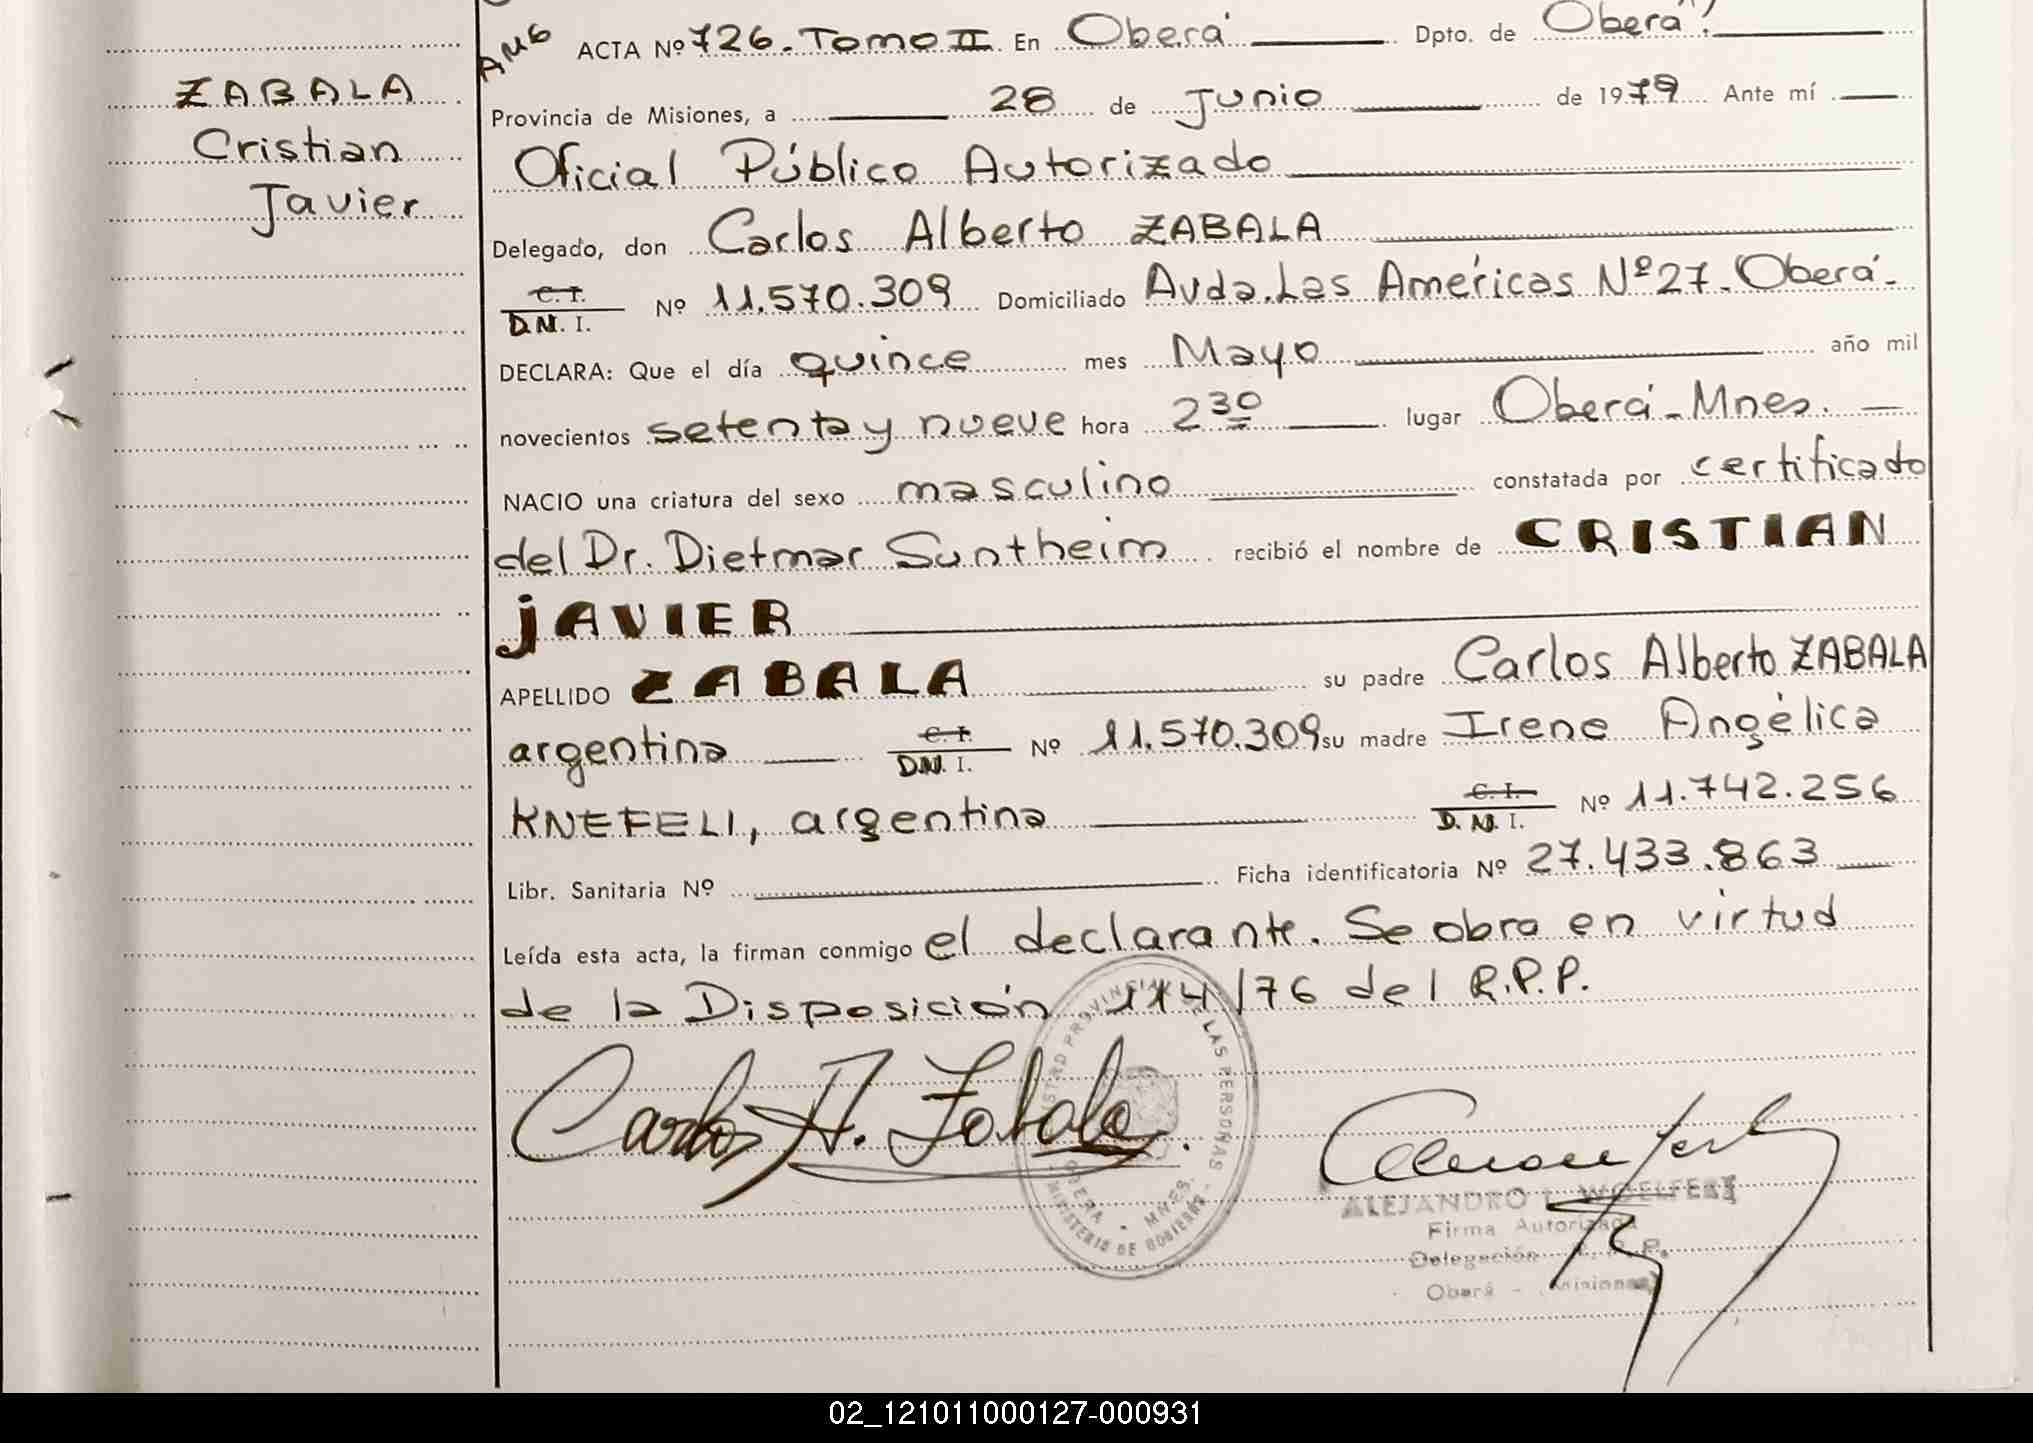 ZABALA
Cristian
Javier
ACTA Nº 726. Tomo II En Oberá Dpto. de Oberá
Provincia de Misiones, a 28 de Junio de 1979 Ante mí
Oficial Público Autorizado
Delegado, don Carlos Alberto ZABALA
C. I.
D.N. I. Nº 11.570.309 Domiciliado Avda. Las Américas Nº 27 - Oberá -
DECLARA: Que el día quince mes Mayo año mil
novecientos setenta y nueve hora 2 30 lugar Oberá - Mnes.
NACIO una criatura del sexo masculino constatada por certificado
del Dr. Dietmar Suntheim recibió el nombre de CRISTIAN
JAVIER
APELLIDO ZABALA su padre Carlos Alberto ZABALA
argentina C. I.
D.N. I. Nº 11.570.309 su madre Irene Angélica
KNEFELI, argentina C. I.
D. N. I. Nº 11.742.256
Libr. Sanitaria Nº Ficha identificatoria Nº 27.433.863
Leída esta acta, la firman conmigo el declarante. Se obra en virtud
de la Disposición 114/76 del R.P.P.
Carlos A. Zabala.
PROVINCIAL DE LAS PERSONAS
OBERA - MNES.
MINISTERIO DE GOBIERNO
ALEJANDRO
Firma Autorizada
Delegación
Oberá - Misiones
02_121011000127-000931